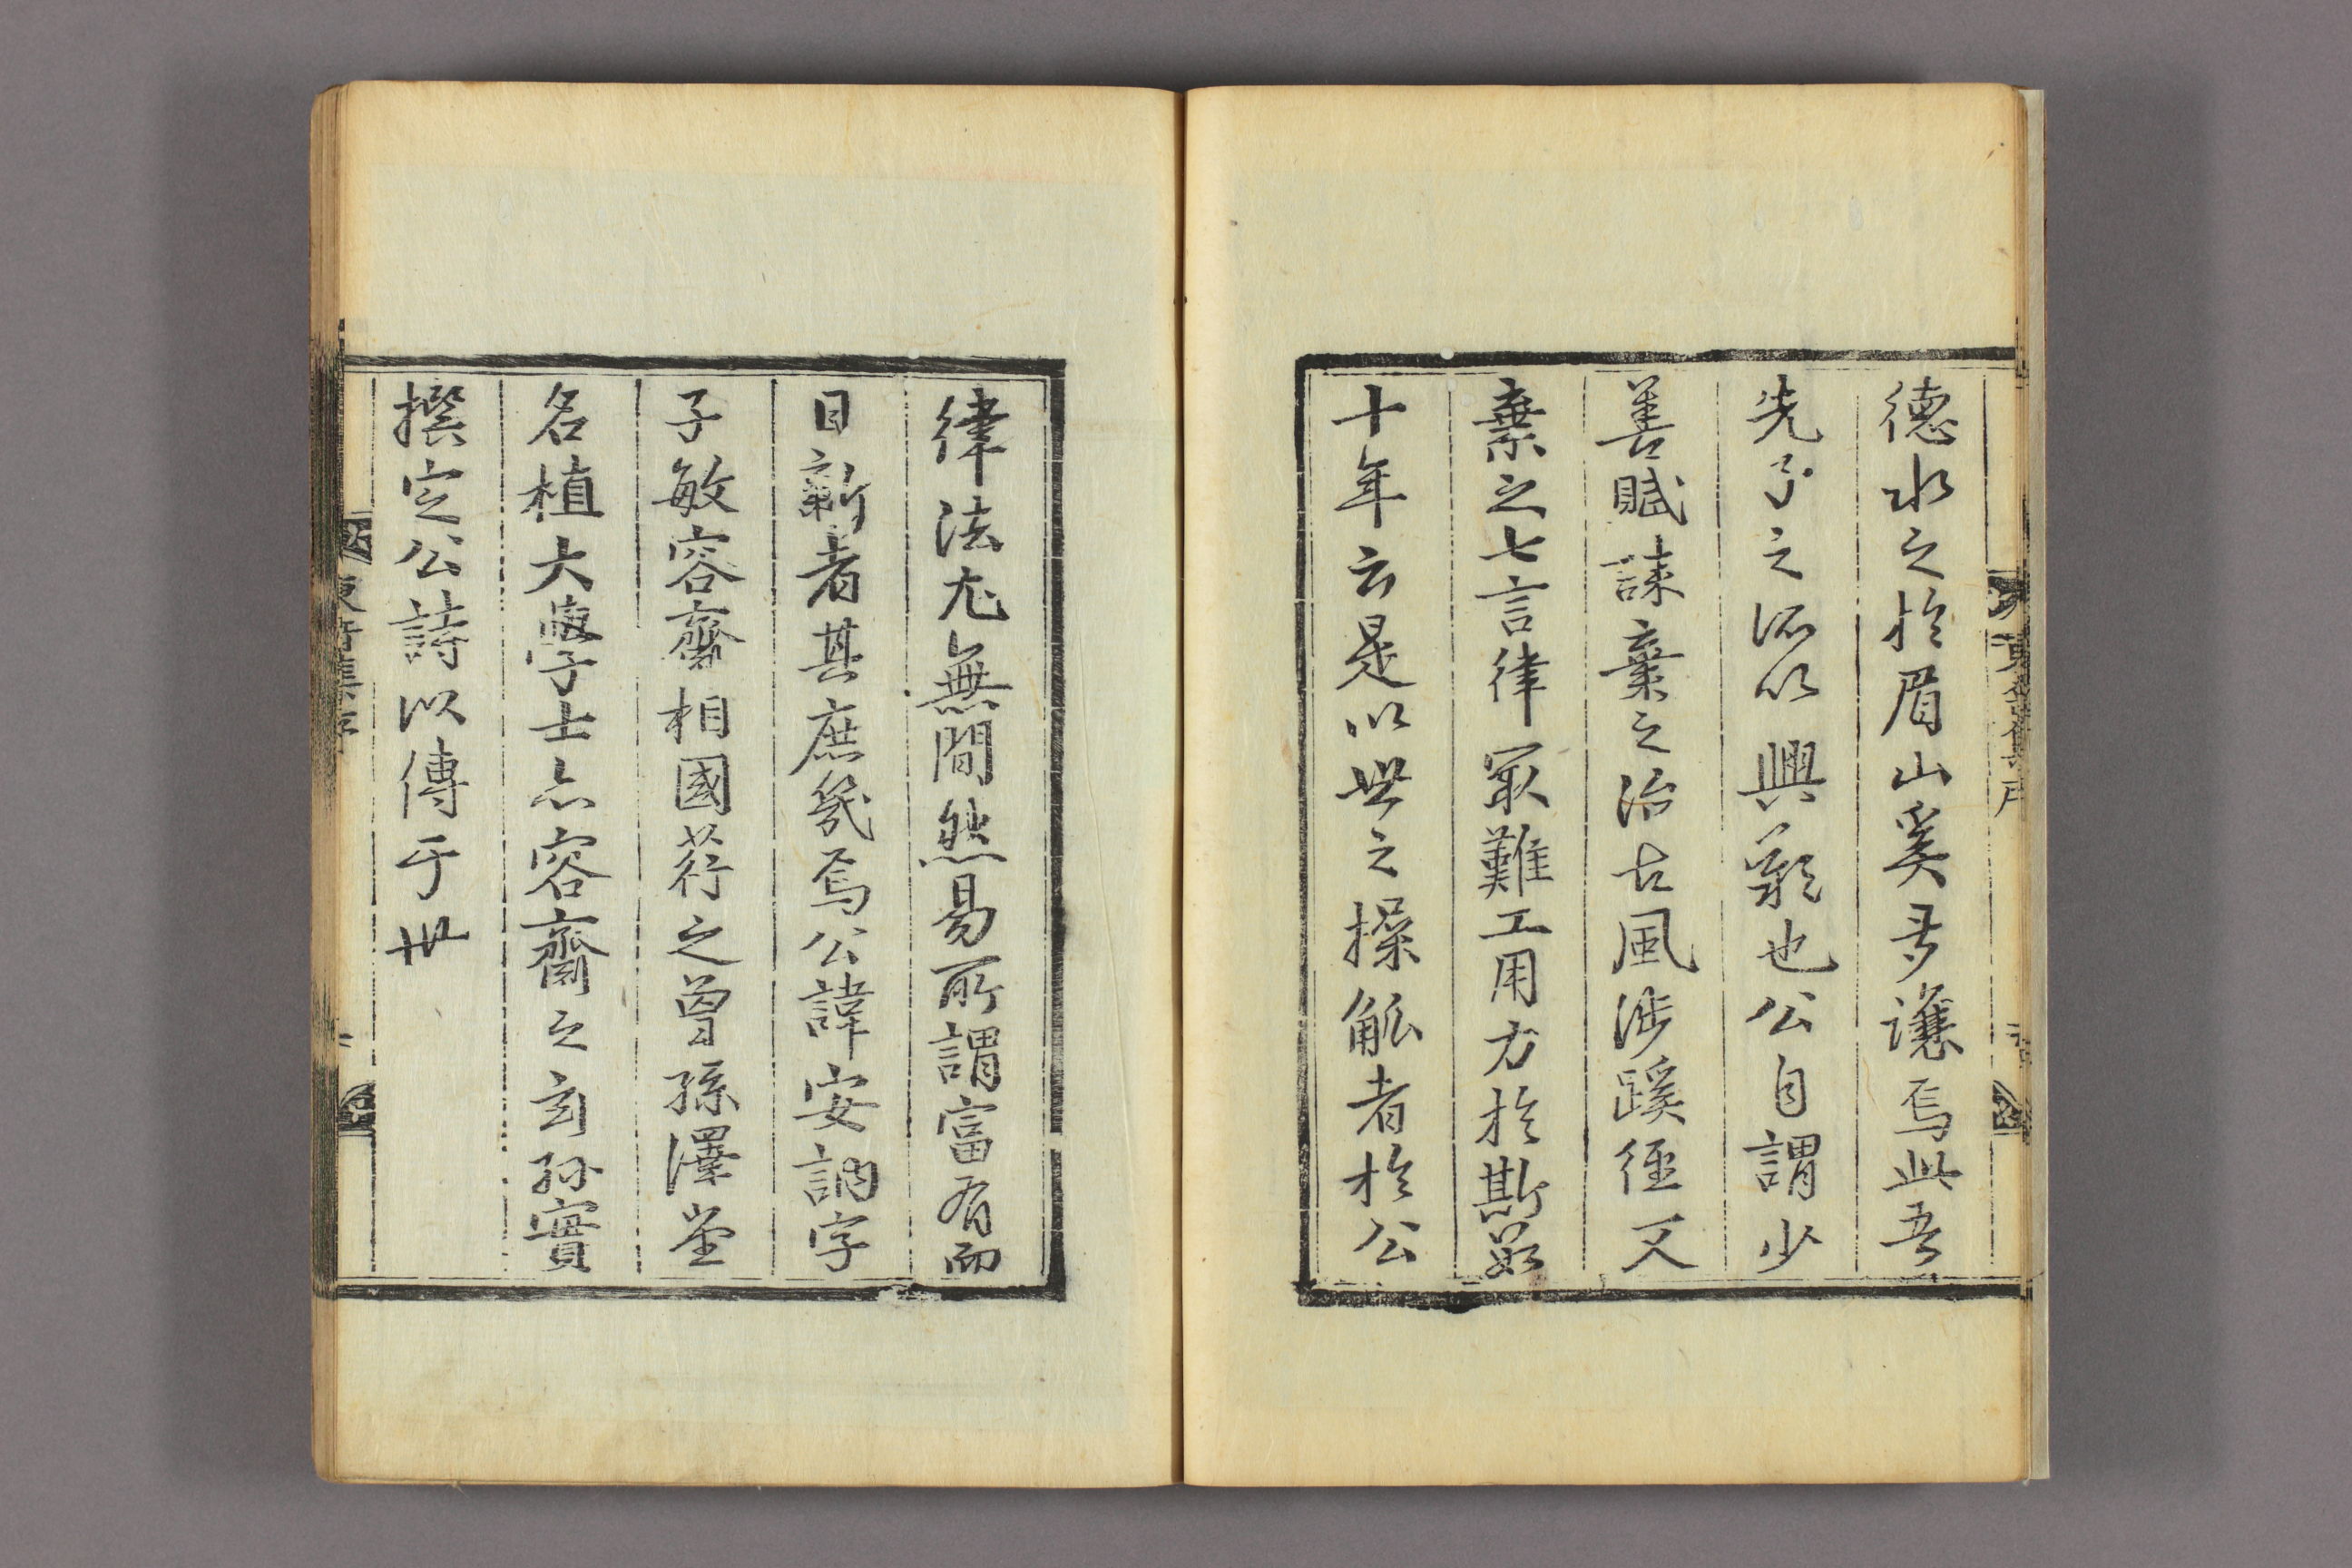 德水之於眉山奚多讓焉此吾
先子之所以興歎也公自謂少
善賦誄棄之治古風涉蹊徑又
棄之七言律最難工用力於斯數
十年云是以世之操觚者於公
律法尤無間然易所謂富有而
日新者其庶幾焉公諱安訥字
子敏容齋相國荇之曾孫澤堂
名植大學士亦容齋之玄孫實
撰定公詩以傳于世